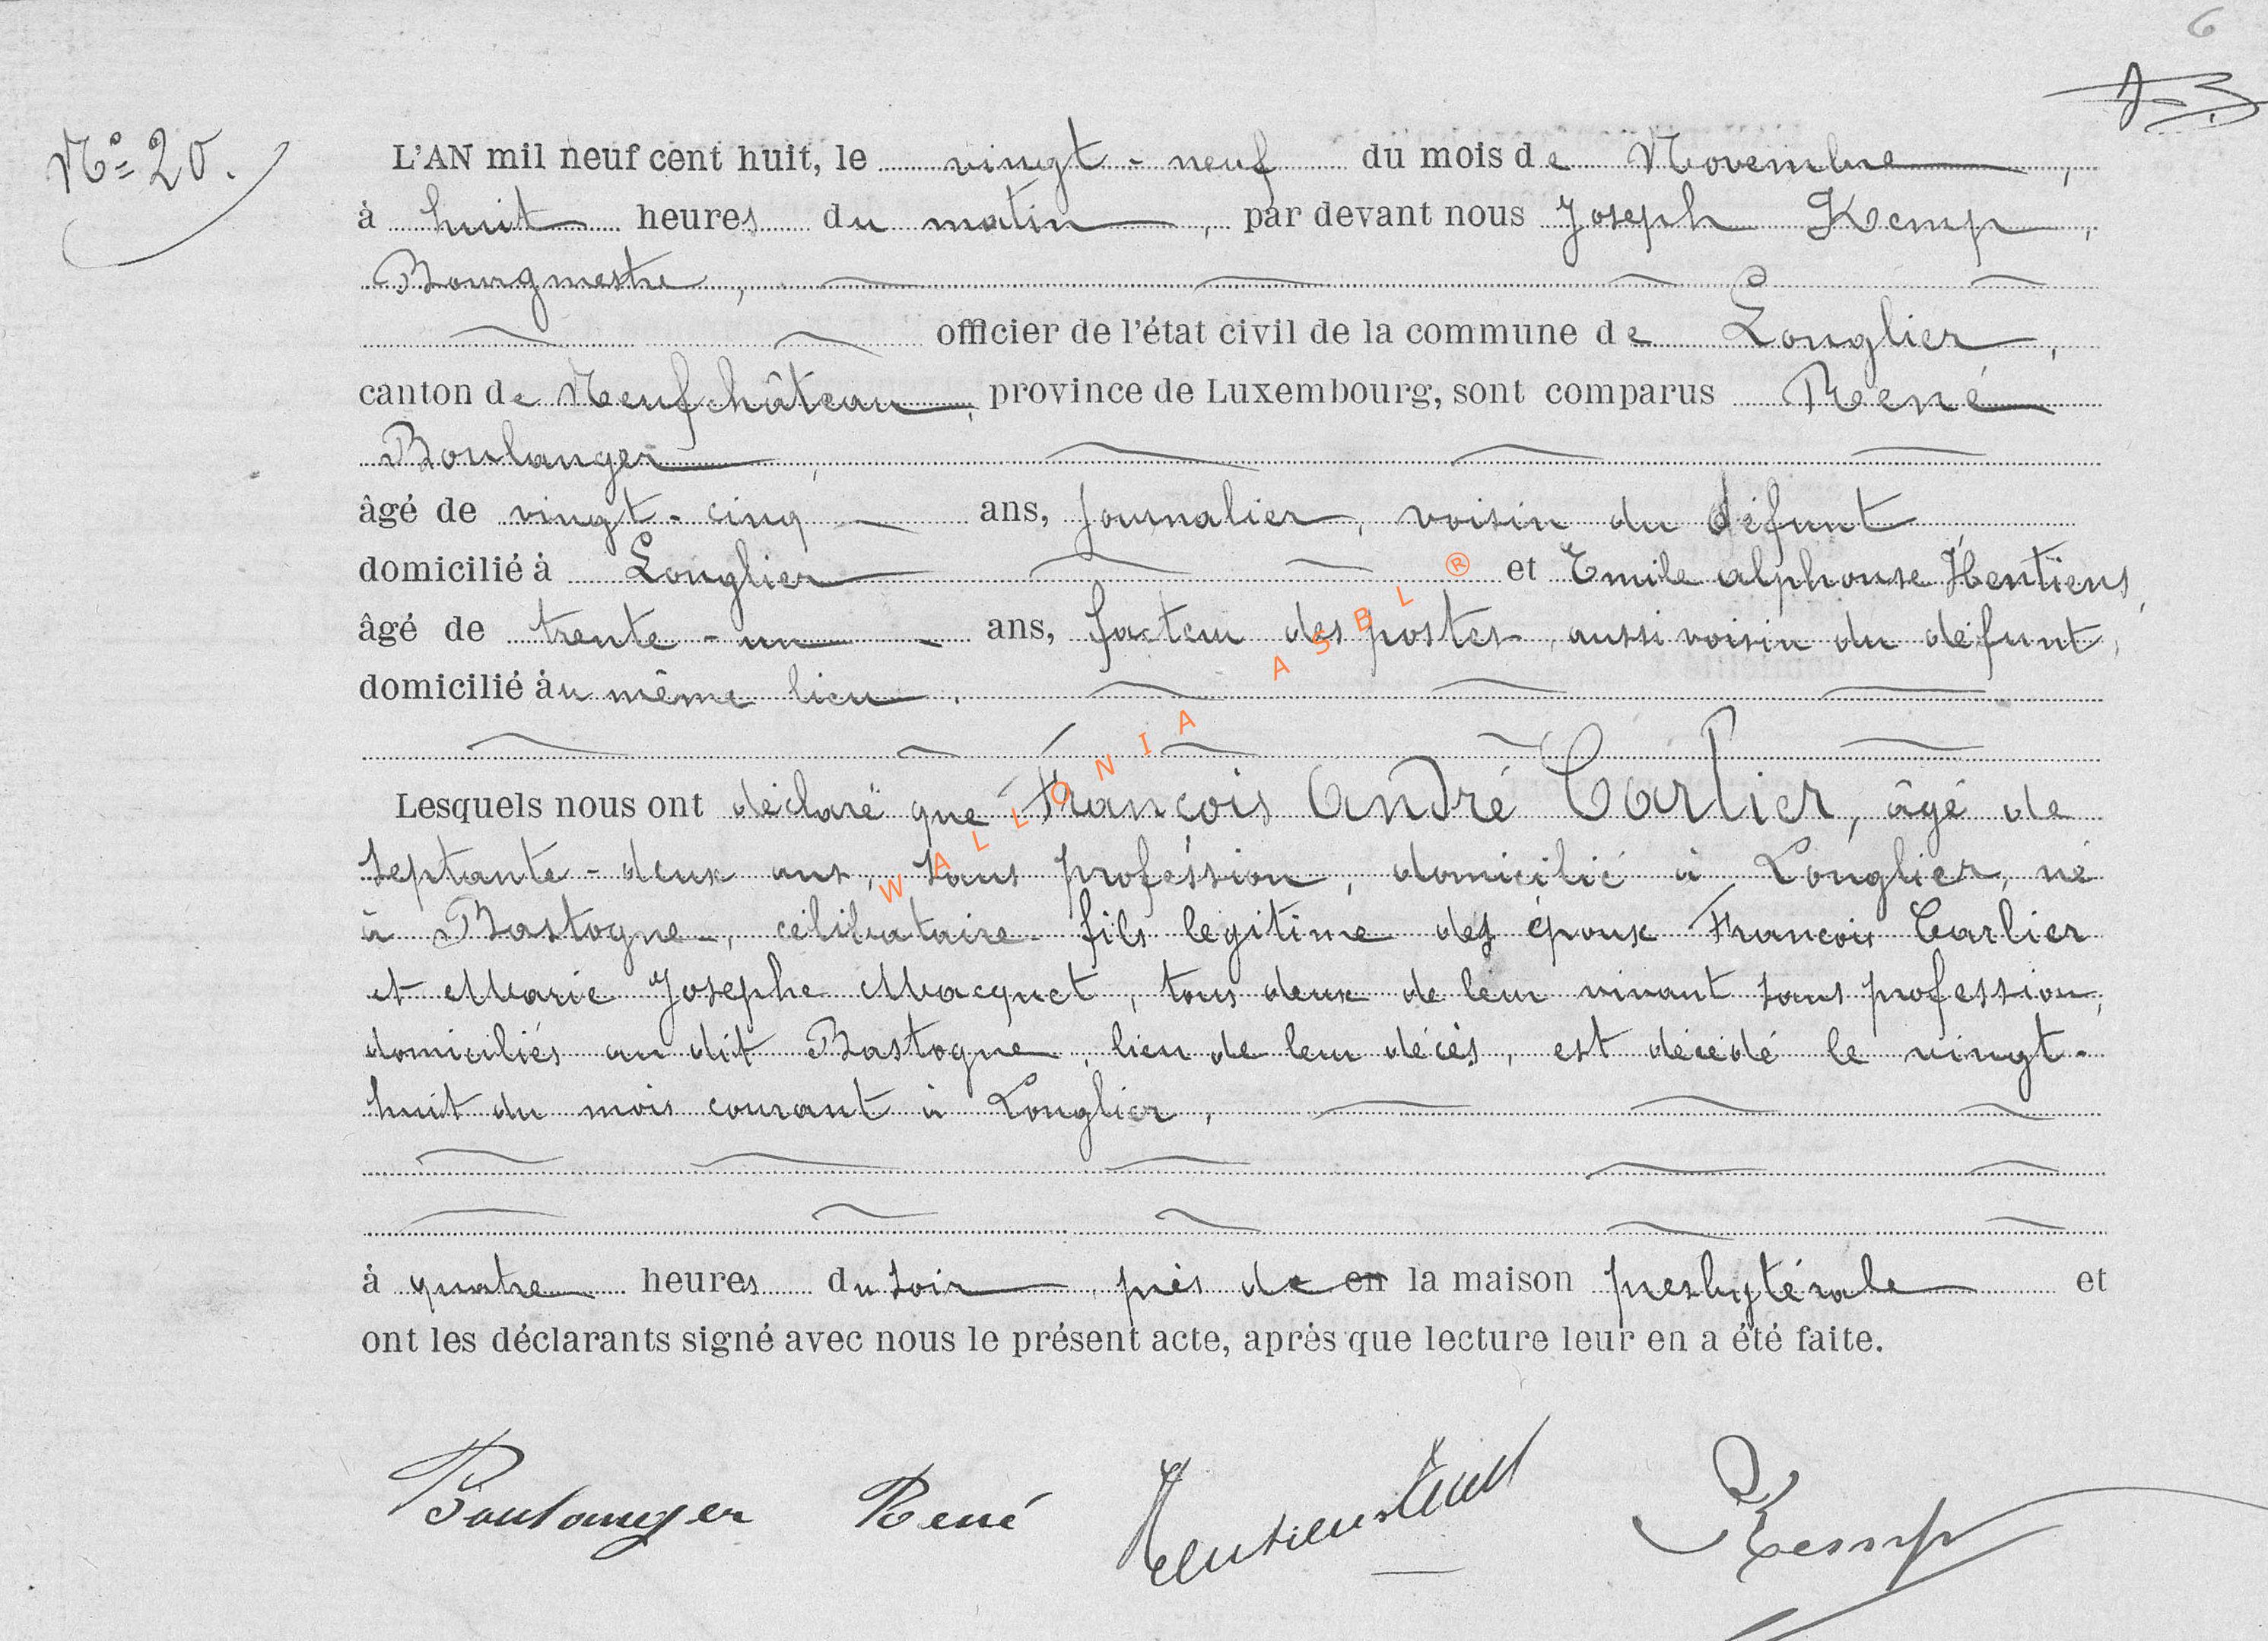 6
N° 20.
L'AN mil neuf cent huit, le vingt-neuf du mois de Novembre,
à huit heures du matin, par devant nous Joseph Kemp,
Bourgmestre,
officier de l'état civil de la commune de Longlier,
canton de Neufchâteau, province de Luxembourg, sont comparus René
Boulanger,
âgé de vingt-cinq ans, journalier, voisin du défunt
domicilié à Longlier et Emile alphonse Hentiens,
âgé de trente-un ans, facteur des postes, aussi voisin du défunt,
domicilié àu même lieu.
Lesquels nous ont déclaré que François André Carlier, âgé de
septante-deux ans, sans profession, domicilié à Longlier, né
à Bastogne, célibataire fils legitime des époux François Carlier
et Marie Josephe Macquet, tous deux de leur vivant sans profession,
domiciliés au dit Bastogne, lieu de leur décès, est décédé le vingt-
huit du mois courant à Longlier,
à quatre heures du soir, près de en la maison presbytérale et
ont les déclarants signé avec nous le présent acte, après que lecture leur en a été faite.
Boulanger René Hentiens Emile Kemp
WALLONIA ASBL ®